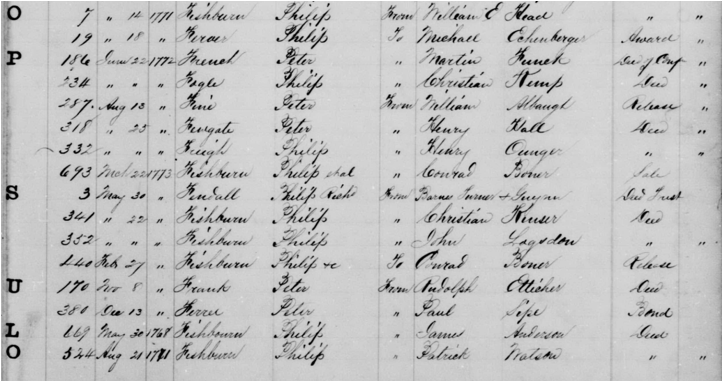 O 7 " 14 1771 Fishburn Philip From William E Head " "
19 " 18 " Feroer Philip To Michael Ochenberger Award "
P 186 June 22 1772 French Peter " Martin Funck Deed of Conf "
234 " " " Fogle Philip " Christian Kemp Deed "
287. Aug 13 " Fine Peter From William Albaugh Release "
318 " 25 " Peter " Henry Hall Deed "
332 " " " Philip " Henry " "
693 Mch 22 1773 Fishburn Philip et al " Conrad Boner Sale "
S 3 May 30 " Fendall Philip Richd From Barnes Turner & Gwynn Deed Trust
341 " 22 " Fishburn Philip " Christian Kinser Deed
352 " " " Fishburn Philip " John Logsdon " "
440 Feb 27 " Fishburn Philip &c To Conrad Boner Release
U 170 Nov 8 " Frank Peter From Rudolph Deed "
380 Dec 13 " Ferree Peter " Paul Bond "
L 669 May 30 1768 Fishbourn Philip " James Anderson Deed "
O 524 Aug 21 1771 Fishburn Philip " Patrick Watson " "